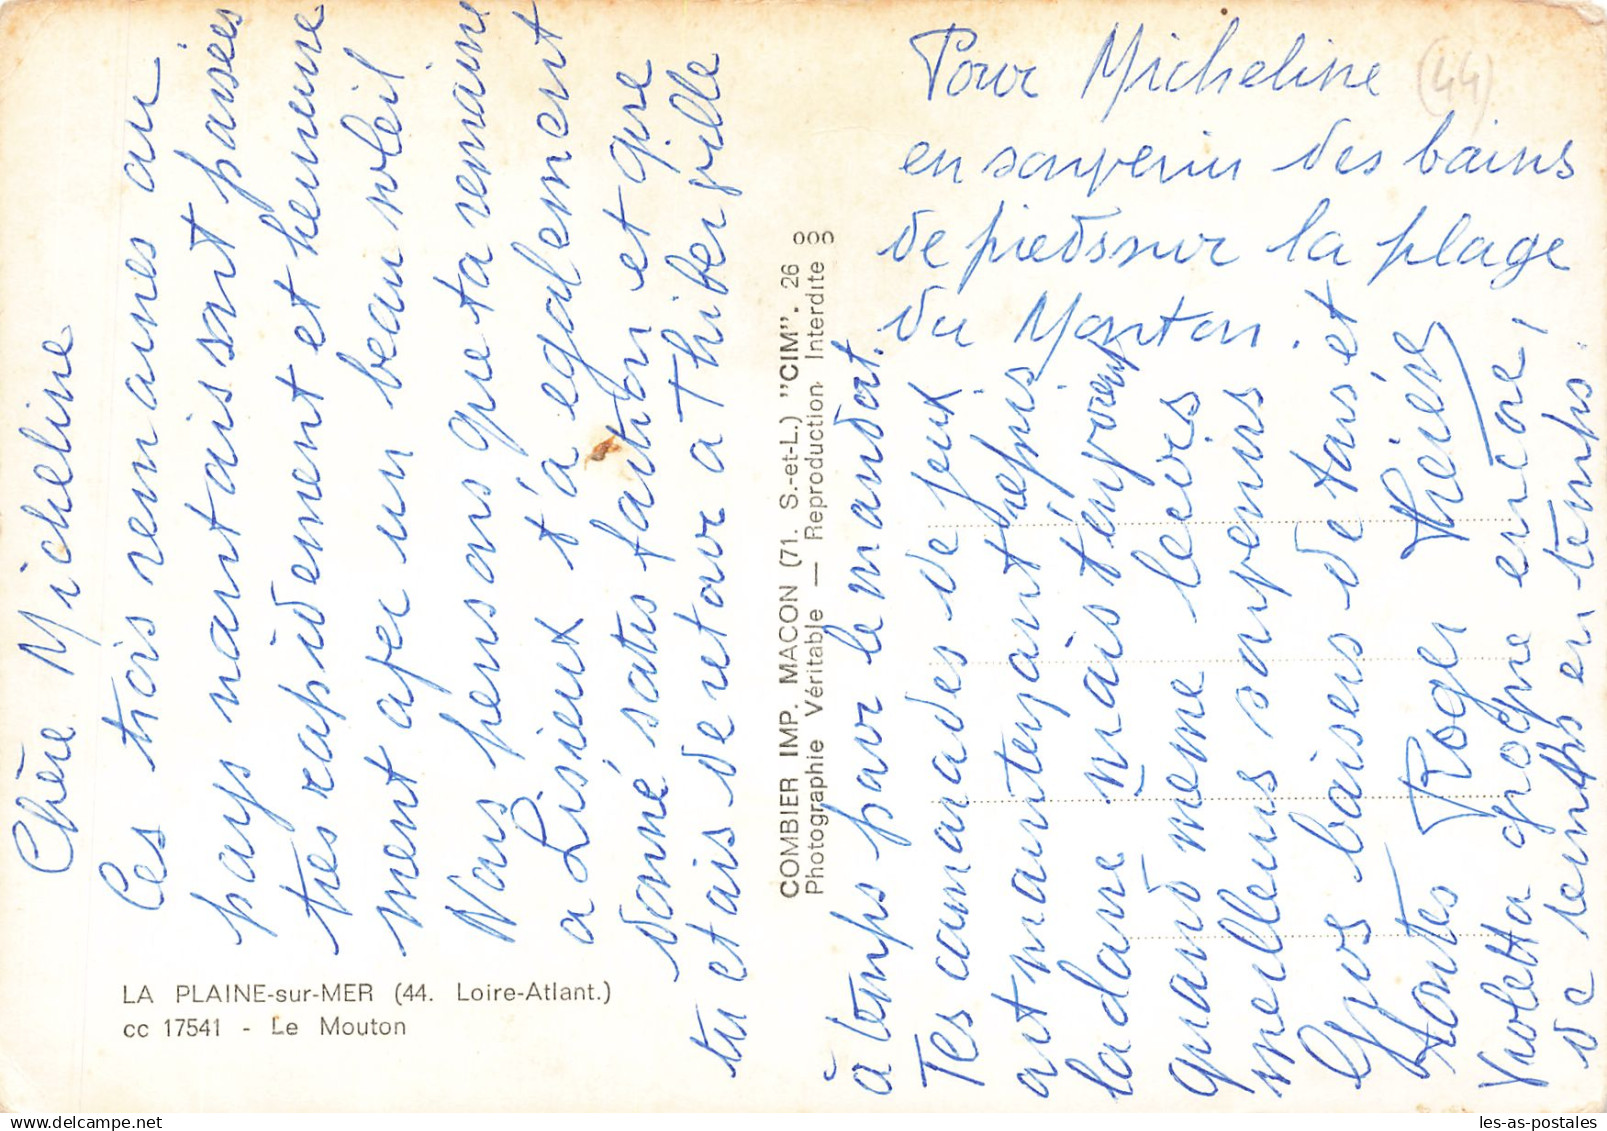 Chère Micheline
Ces trois semaines au
pays nantais sont passées
très rapidement et heureuse
ment avec un beau soleil
Nous pensons que ta semaine
a Lisieux t'a egalement
donné satisfaction et que
tu etais de retour a Thiberville
à temps pour le mandat.
Tes camarades de jeux
ont maintenant repris
la
quand meme leurs
meilleurs souvenirs
Gros baisers de tous et
Toutes Roger Hélène
Violetta grogne encore,
de temps en temps.
Pour Micheline
en souvenir des bains
de pieds sur la plage
du Mouton.
(44)
LA PLAINE-sur-MER (44. Loire-Atlant.)
cc 17541 - Le Mouton
COMBIER IMP. MACON (71. S.-et-L.) "CIM". 26
Photographie Véritable — Reproduction Interdite
les-as-postales